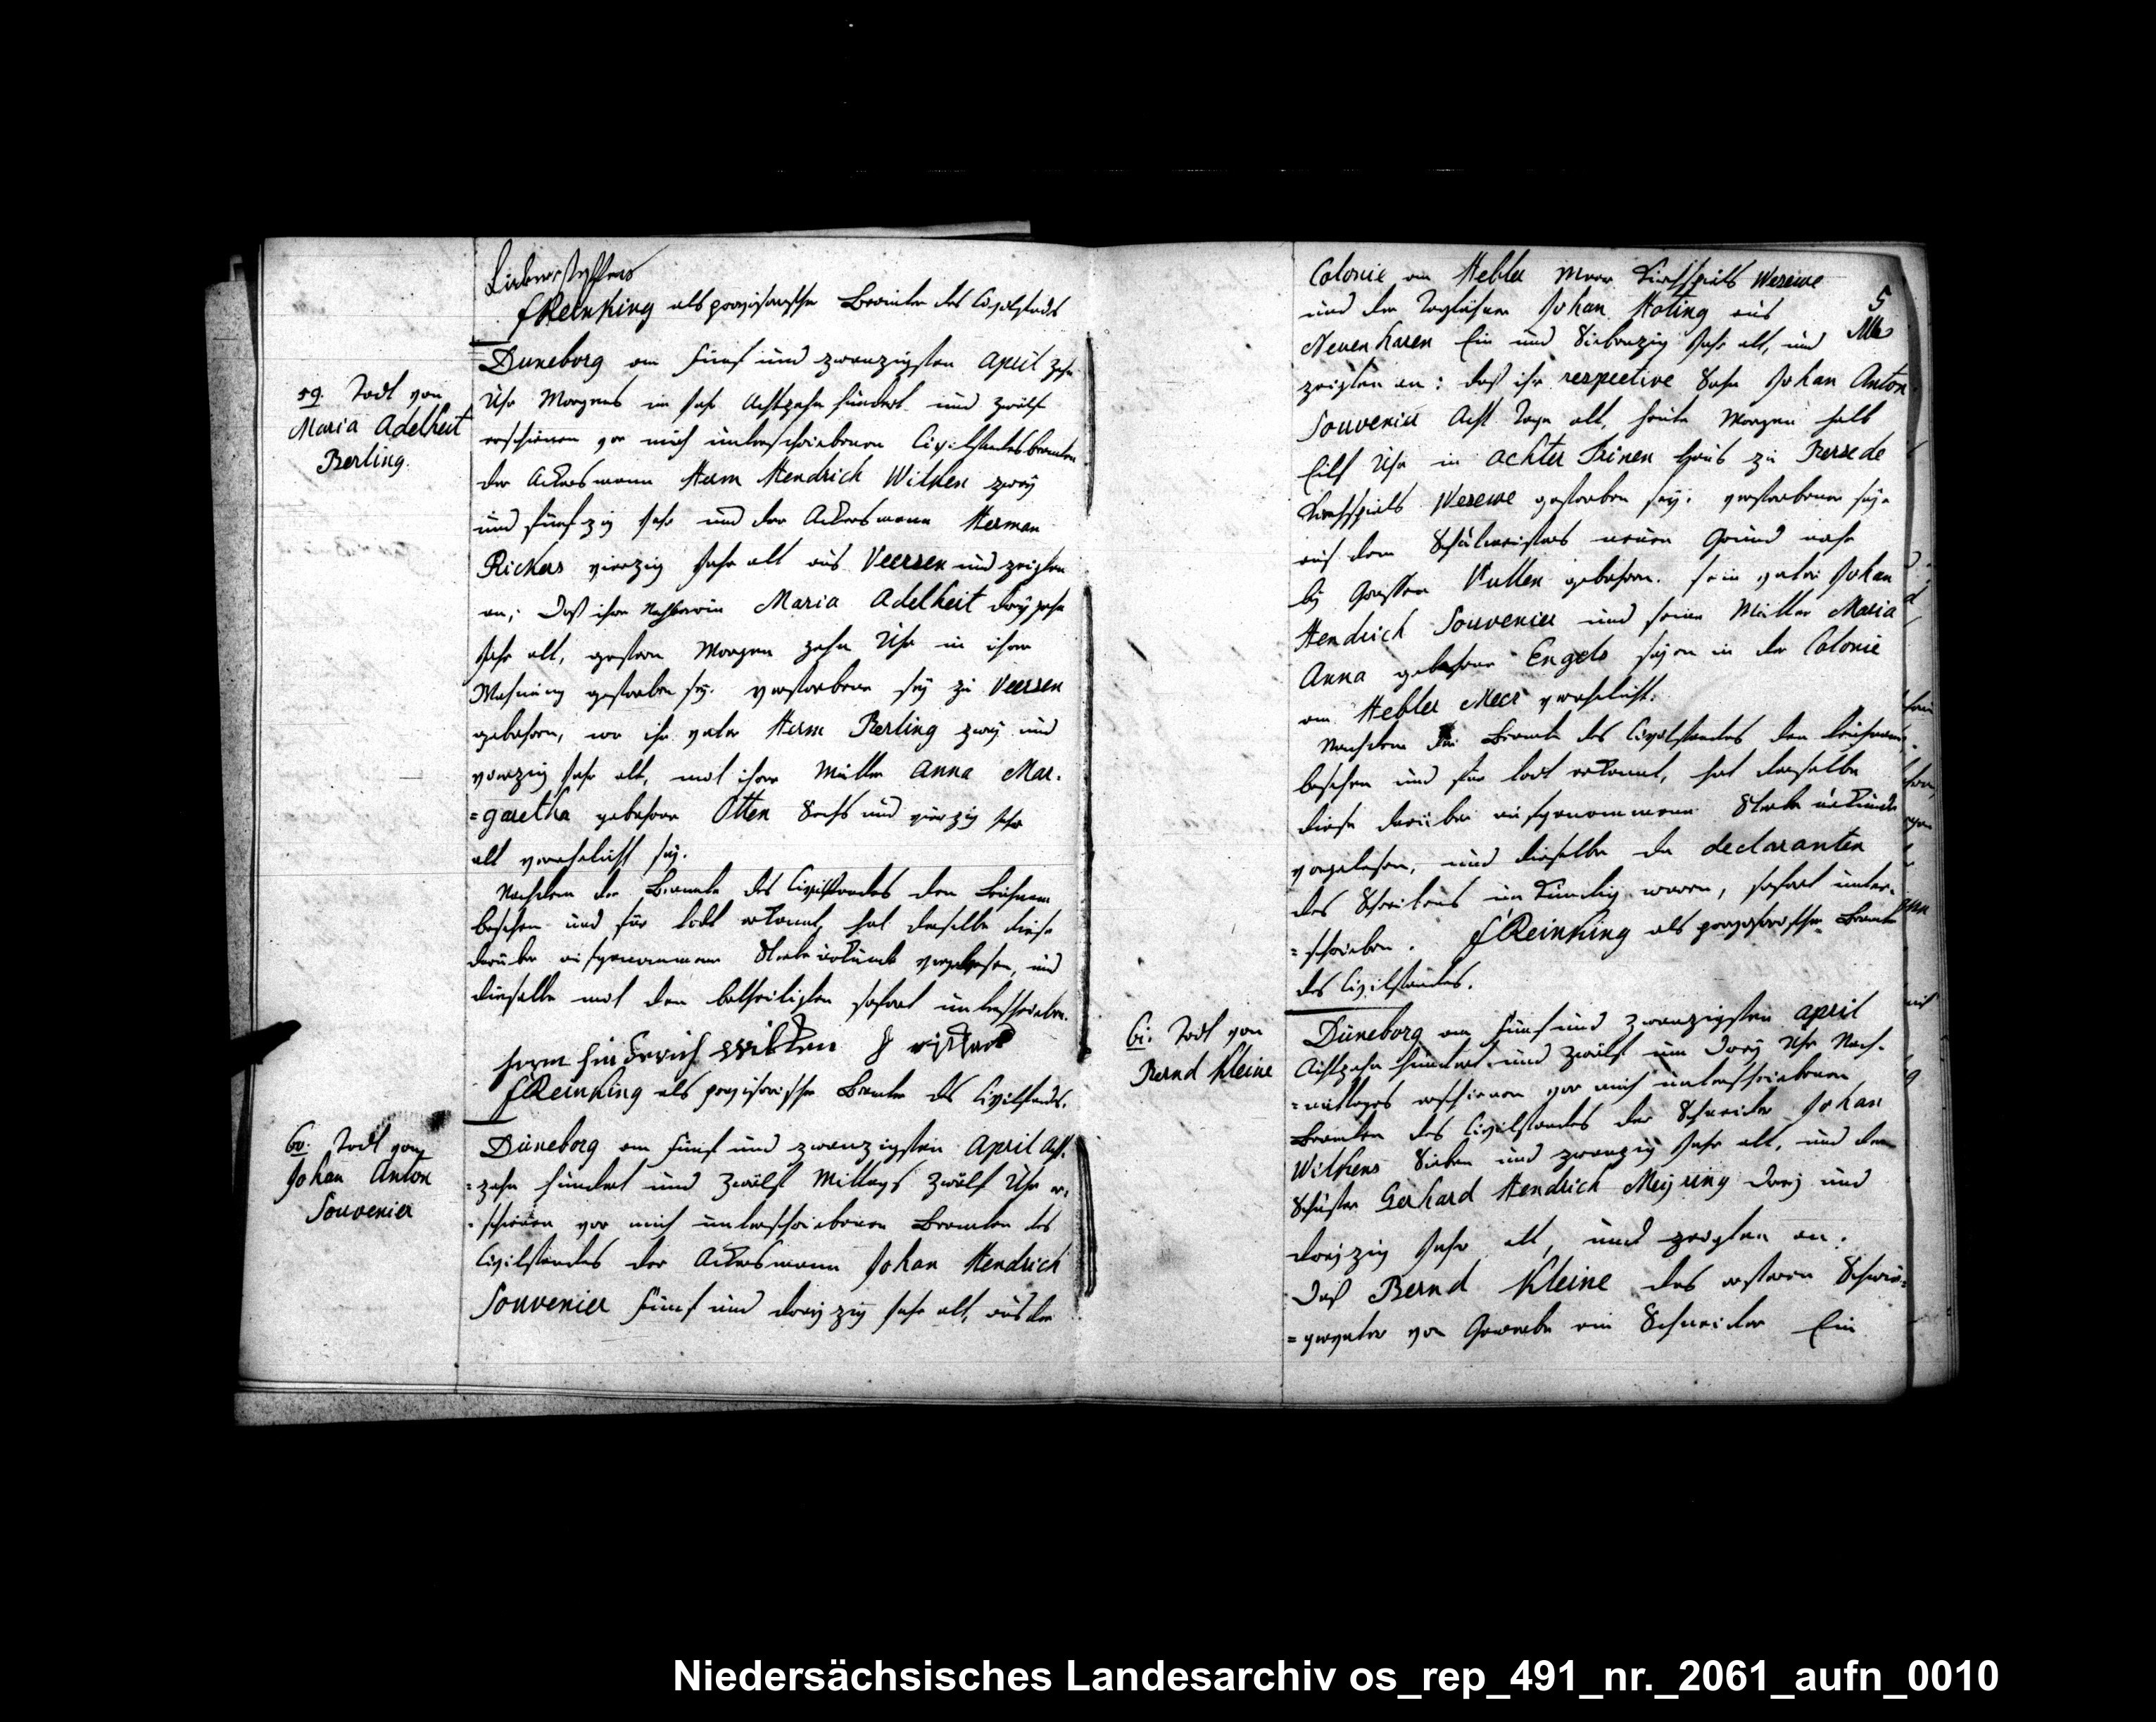 FReinking als provisorischer Beamter des Civilstands
59. Todt von
Maria Adelheit
Berling.
Duneborg am fünf und zwanzigsten April zehn
Uhr Morgens im Jahr Achtzehn hundert und zwölf
erschienen vor mich unterschriebenen Civilstandesbeamten
der Ackersmann Herm Hendrich Wilken zwey
und fünfzig Jahr und der Ackersmann Herman
Rickers vierzig Jahr alt aus Veersen und zeigten
an; Daß ihre Nachbarin Maria Adelheit dreyzehn
Jahr alt, gestern Morgen zehn Uhr in ihrer
Wohnung gestorben sey. verstorbene sey zu Veersen
gebohren, wo ihr vater Herm Berling zwey und
vierzig Jahr alt, mit ihrer Mutter Anna Mar-
=garetha gebohrne Otten Sechs und vierzig Jahr
alt verehelicht sey.
Nachdem der Beamte des Civilstandes den Leichnam
besehen und für todt erkannt, hat derselbe diese
darüber aufgenommene Sterbeurkunde vorgelesen, und
dieselbe mit den betheiligten sofort unterschrieben.
herm hinderich wilken
FReinking als provisorischer Beamter des Civilstands.
60. Todt von
Johan Anton
Souvenier
Düneborg am fünf und zwanzigsten April Acht-
=zehn hundert und zwölf Mittags zwölf Uhr er-
=schienen vor mich unterschriebenen Beamten des
Civilstandes der Ackersmann Johan Hendrich
Souvenier fünf und dreyzig Jahr alt, aus der
5
Colonie am Hebler Meer Kirchspiels Wesewe
und der Taglöhner Johan Hoting aus
Neuenharen Ein und Siebenzig Jahr alt, und
zeigten an: daß ihr respective Sohn Johan Anton
Souvenier Acht Tage alt, heute Morgen halb
Eilf Uhr in achter Trinen Haus zu Bersede
Kirchspiels Wesewe gestorben sey. verstorbener sey
auf dem Schulmeisters neuen Grund nahe
bey Grossen Vullen gebohren. sein vater Johan
Hendrich Souvenier und seine Mutter Maria
Anna gebohrne Engels seyen in der Colonie
am Hebler Meer verehelicht.
Nachdem der Beamte des Civilstandes den Leichnam
besehen und für todt erkannt, hat derselbe
diese darüber aufgenommene Sterbeurkunde
vorgelesen, und dieselbe da declaranten
des Schreibens unkundig waren, sofort unter-
=schrieben. FReinking als provisorischer Beamter
des Civilstandes.
61. Todt von
Bernd Kleine
Düneborg am fünf und zwanzigsten april
Achtzehn hundert und zwölf um drey Uhr Nach-
=mittages erschienen vor mich unterschriebenen
Beamten des Civilstandes der Schneider Johan
Wilkens Sieben und zwanzig Jahr alt, und der
Schuster Gerhard Hendrich Meyring drey und
dreyzig Jahr alt, und zeigten an:
Daß Bernd Kleine des ersteren Schwie-
=gervater von Gewerbe ein Schneider Ein
Niedersächsisches Landesarchiv os_rep_491_nr._2061_aufn_0010